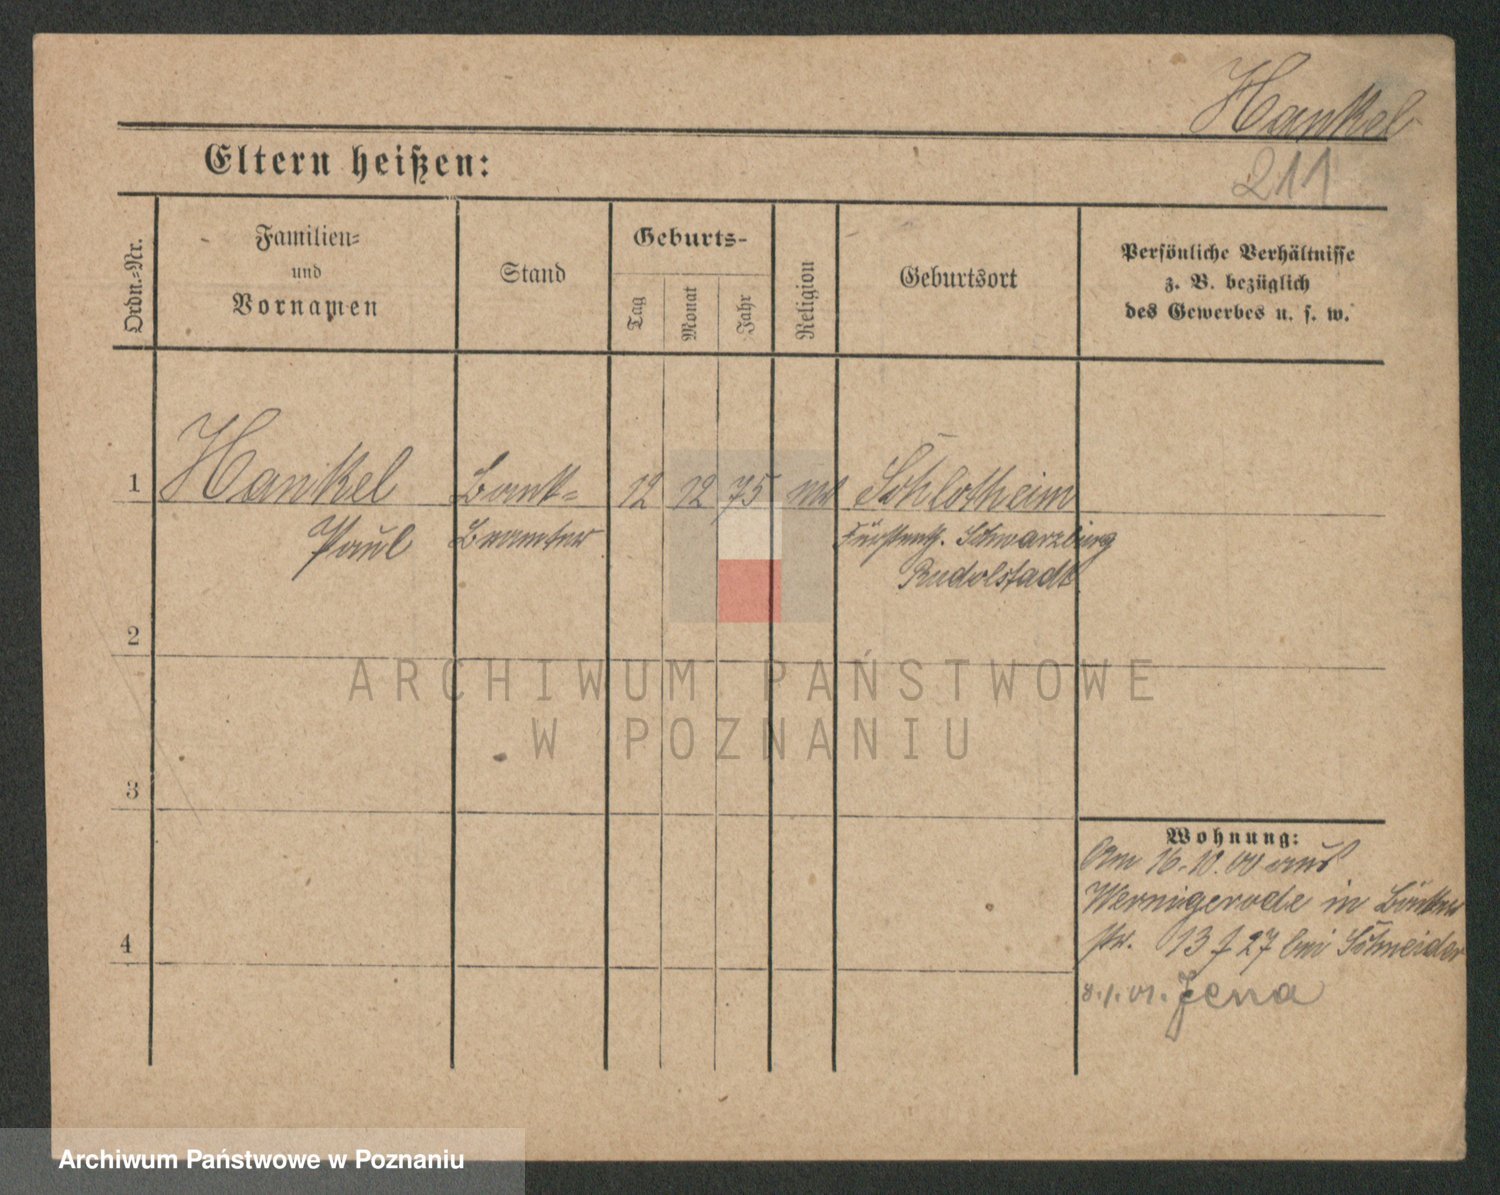 Hankel
211
Eltern heißen:
Ordn.-Nr.
Familien-
und
Vornamen
Stand
Geburts-
Tag
Monat
Jahr
Religion
Geburtsort
Persönliche Verhältnisse
z. B. bezüglich
des Gewerbes u. s. w.
1
Hankel
Bank-
12
12
75
Schlotheim
Paul
Beamter
Fürstenth. Schwarzburg
Rudolstadt
2
ARCHIWUM PAŃSTWOWE
W POZNANIU
3
Wohnung:
Am 16.10.00 aus
Wernigerode in
str. 13 bei Schneider
4
8.1.01. Jena
Archiwum Państwowe w Poznaniu